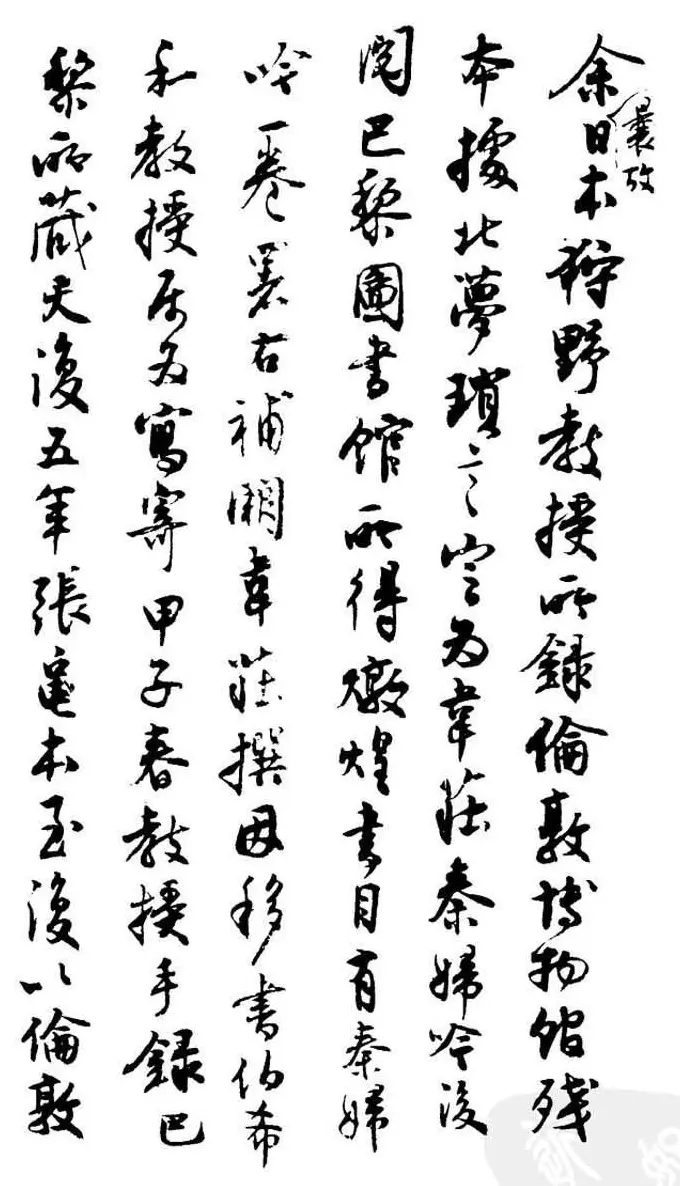 余曩攷日本狩野教授所録倫敦博物館殘
本據北夢瑣言定為韋莊秦婦吟後
閱巴黎圖書館所得燉煌書目有秦婦
吟一卷署右補闕韋莊撰因移書伯希
和教授属為寫寄甲子春教授手録巴
黎所藏天復五年張龜本至復以倫敦